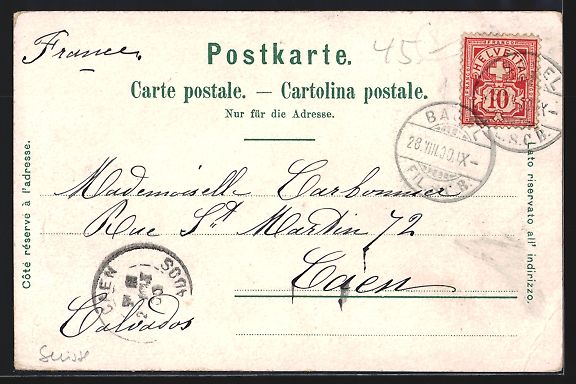 France.
Postkarte.
45
Carte postale. — Cartolina postale.
Nur für die Adresse.
HELVETIA
FRANCO
10
BAS
28.VIII.00.IX-
Côté réservé à l'adresse.
Lato riservato all' indirizzo.
Mademoiselle Carbonnier
Rue St Martin 72
Caen
Calvados
CAEN
Suisse